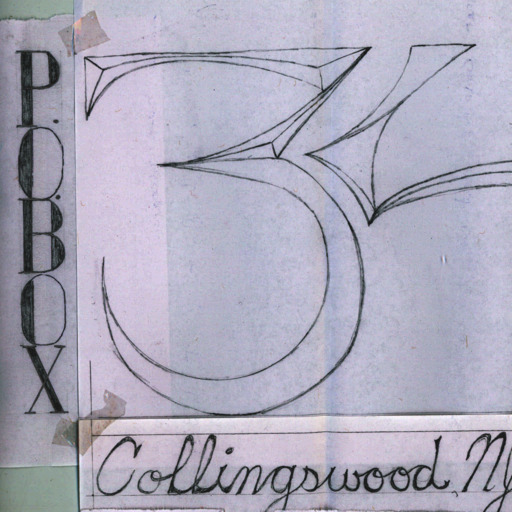 P.O.BOX
3
Collingswood, NJ